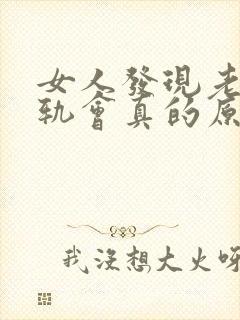 女人發現老
軌會真的原
我沒想大火呀